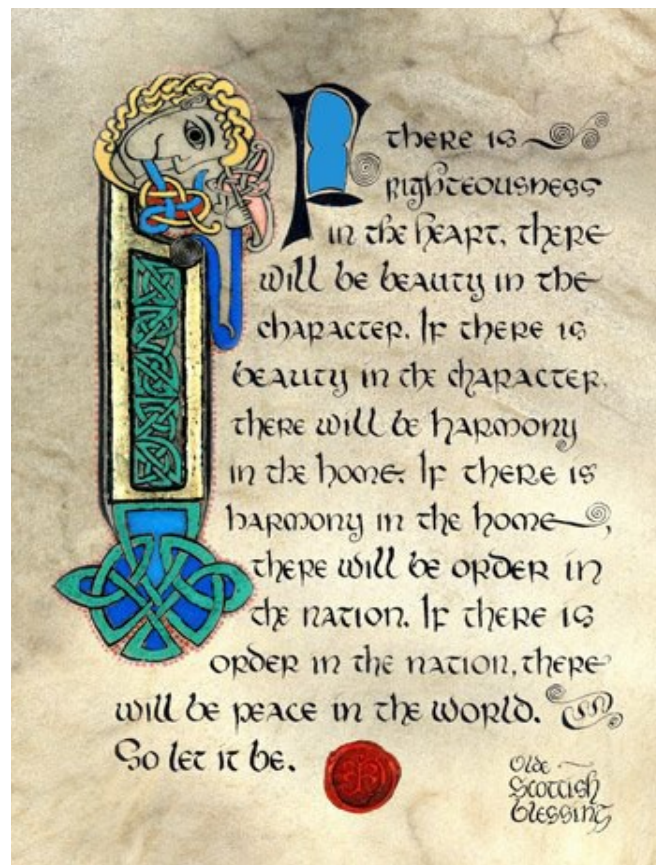 If there is
righteousness
in the heart, there
will be beauty in the
character. If there is
beauty in the character,
there will be harmony
in the home. If there is
harmony in the home,
there will be order in
the nation. If there is
order in the nation, there
will be peace in the world.
So let it be.
Olde
Scottish
blessing